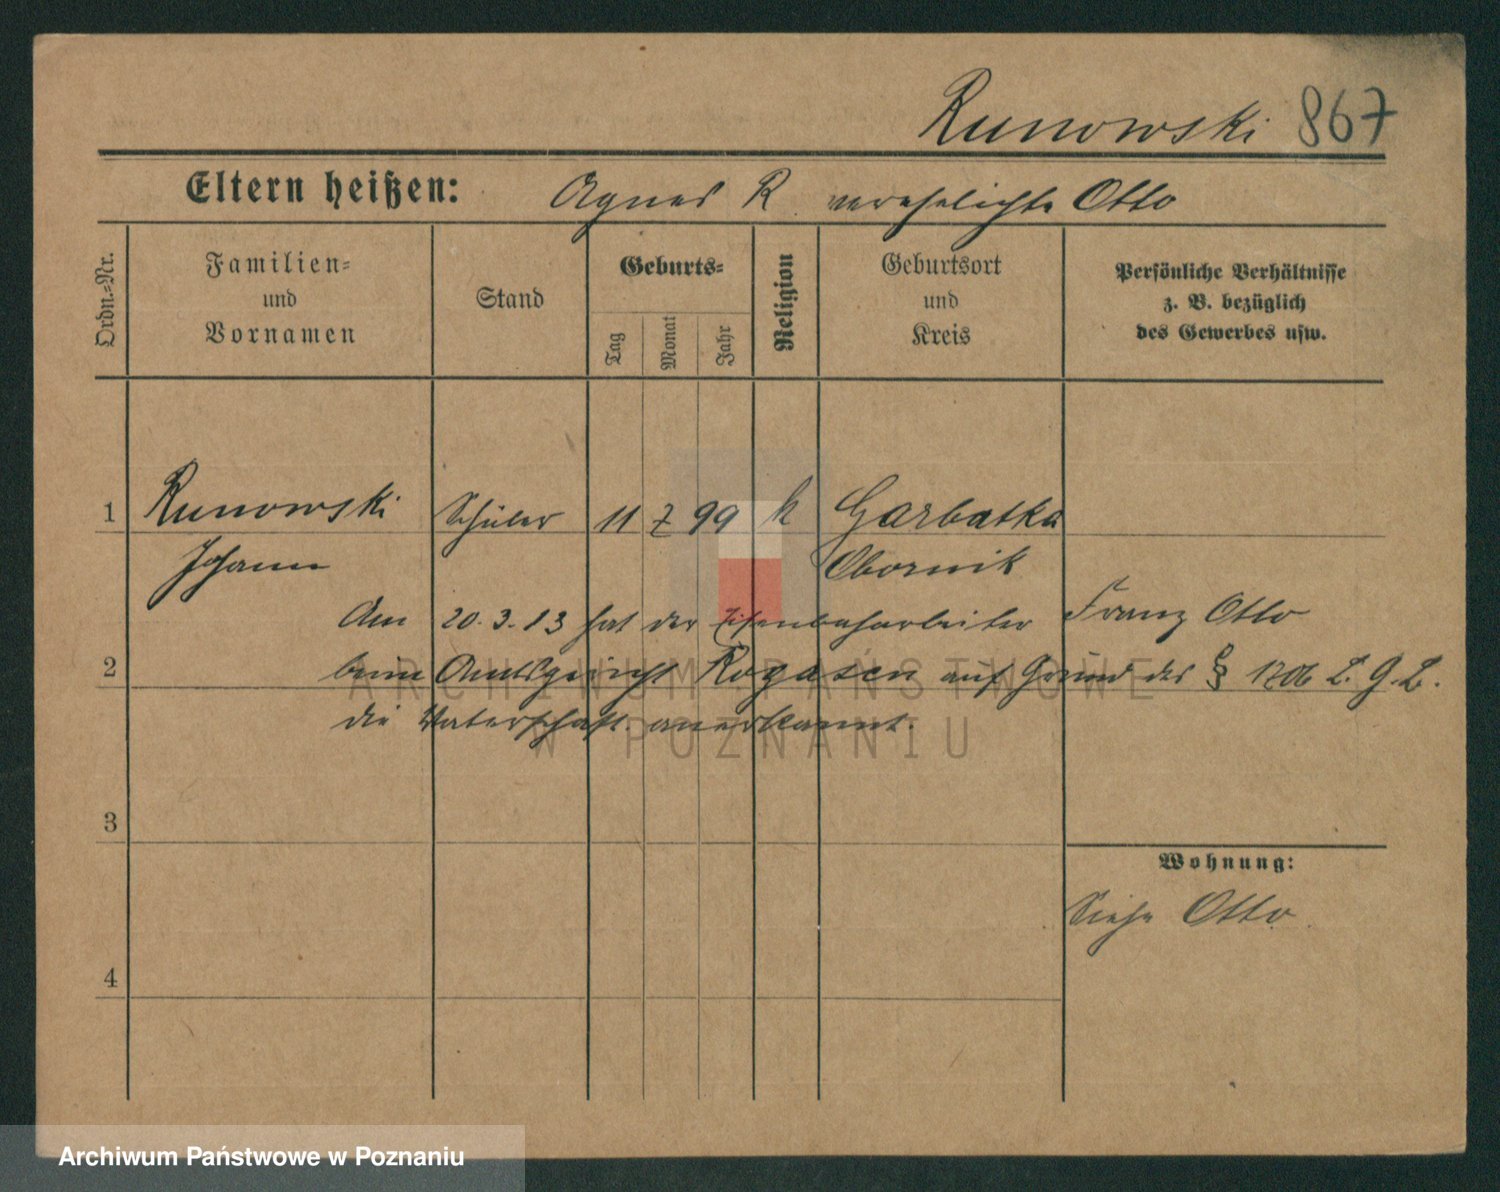 Runowski 867
Eltern heißen: Agnes R verehelichte Otto
Ordn.-Nr.
Familien-
und
Vornamen
Stand
Geburts-
Tag
Monat
Jahr
Religion
Geburtsort
und
Kreis
Persönliche Verhältnisse
z. B. bezüglich
des Gewerbes usw.
1 Runowski Schüler 11 7 99 k Garbatka
Johann Obornik
Am 20.3.13 hat der Eisenbaharbeiter Franz Otto
2 beim Amtsgericht Rogasen auf Grund des § 1706 B.G.B.
die Vaterschaft anerkannt.
3
Wohnung:
Siehe Otto
4
ARCHIWUM PAŃSTWOWE
W POZNANIU
Archiwum Państwowe w Poznaniu